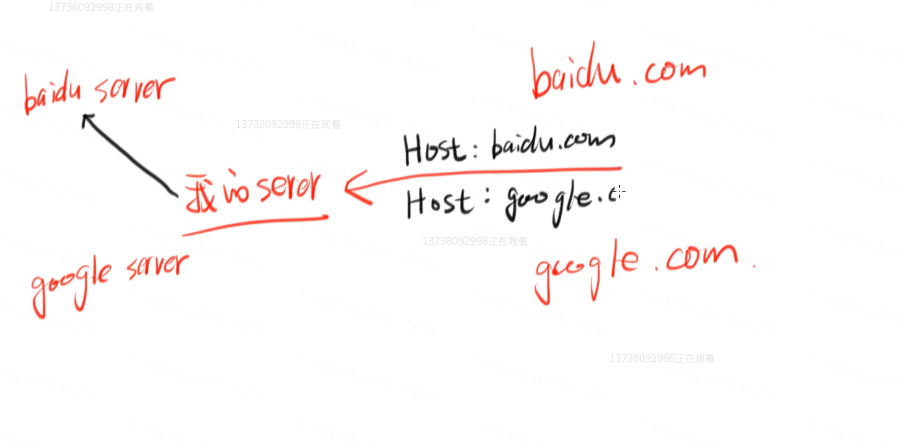 13738092998正在观看
baidu.com
baidu server
13738092998正在观看
Host: baidu.com
我的 server
Host: google.c
13738092998正在观看
google.com.
google server
13738092998正在观看